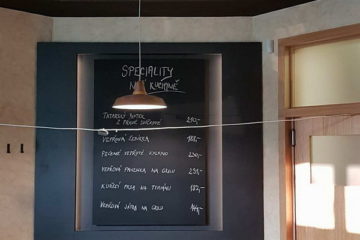 SPECIALITY
NAŠÍ KUCHYNĚ
TATARSKÝ BIFTEK
Z PRAVÉ SVÍČKOVÉ 290,-
VEPŘOVÁ 188,-
PEČENÉ VEPŘOVÉ KOLENO 250,-
VEPŘOVÁ PANENKA NA GRILU 251,-
KUŘECÍ PRSA NA TYMIÁNU 182,-
VEPŘOVÁ JÁTRA NA GRILU